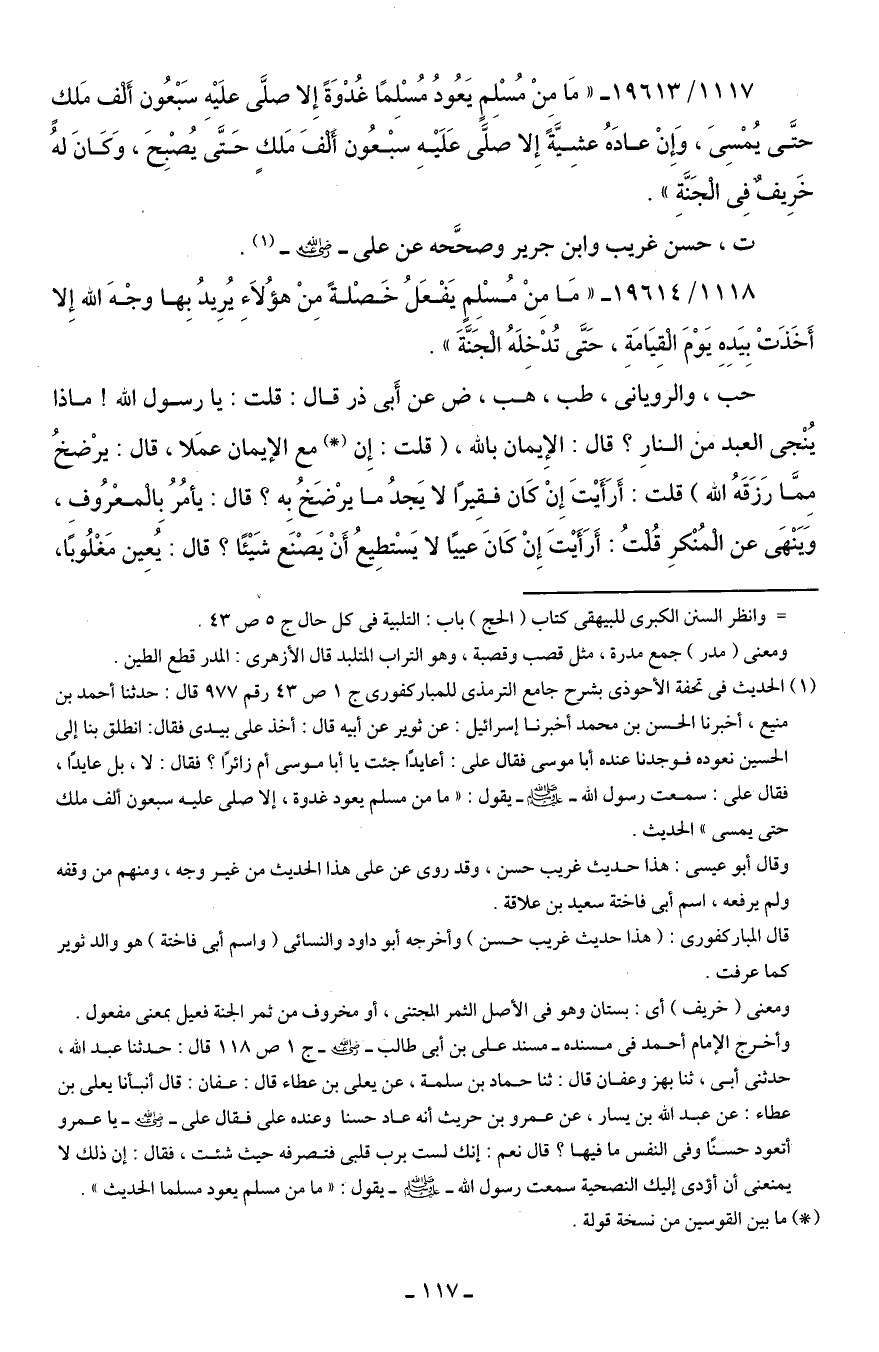 ١١١٧/ ١٩٦١٣ـ « مَا مِنْ مُسْلِمٍ يَعُودُ مُسْلِمًا غُدْوَةً إلا صلَّى علَيْهِ سَبْعُون أَلْف مَلك
حتَّى يُمْسِىَ ، وَإِنْ عادَهُ عشيَّةً إلا صلَّى عَلَيْهِ سبْعُون أَلْفَ مَلكٍ حَتَّى يُصْبحَ ، وَكَانَ لهُ
خَرِيفٌ فِى الْجَنَّةِ » .
ت ، حسن غريب وابن جرير وصحَّحه عن على ـ رضي الله عنه ـ (١) .
١١١٨/ ١٩٦١٤ـ « مَا مِنْ مُسْلِمٍ يَفْعَلُ خَصْلةً مِنْ هؤُلاَءِ يُرِيدُ بِها وجْهَ الله إلا
أَخَذَتْ بِيَدِهِ يَوْمَ الْقِيَامَةِ ، حَتَّى تُدْخلَهُ الْجَنَّةَ » .
حب ، والرويانى ، طب ، هب ، ض عن أَبى ذر قال : قلت : يا رسول الله ! ماذا
يُنْجى العبد من النارِ ؟ قال : الإيمان بالله ، ( قلت : إن (*) مع الإيمان عملا ، قال : يرْضخُ
ممَّا رَزَقَهُ الله ) قلت : أَرَأَيْتَ إنْ كَان فقيرًا لا يَجدُ ما يرْضَخُ به ؟ قال : يأمُرُ بِالْمعْرُوفِ ،
وَيَنْهَى عن الْمُنْكرِ قُلْتُ : أَرَأَيْتَ إنْ كَانَ عييًا لا يَسْتطيعُ أَنْ يَصْنَع شَيْئًا ؟ قال : يُعين مَغْلُوبًا،
= وانظر السنن الكبرى للبيهقى كتاب ( الحج ) باب : التلبية فى كل حال ج ٥ ص ٤٣ .
ومعنى ( مدر ) جمع مدرة ، مثل قصب وقصبة ، وهو التراب المتلبد قال الأزهرى : المدر قطع الطين .
(١) الحديث فى تحفة الأحوذى بشرح جامع الترمذى للمباركفورى ج ١ ص ٤٣ رقم ٩٧٧ قال : حدثنا أحمد بن
منيع ، أخبرنا الحسن بن محمد أخبرنا إسرائيل : عن ثوير عن أبيه قال : أخذ على بيدى فقال: انطلق بنا إلى
الحسين نعوده فوجدنا عنده أبا موسى فقال على : أعايدًا جئت يا أبا موسى أم زائرًا ؟ فقال : لا ، بل عايدًا ،
فقال على : سمعت رسول الله ـ ﷺ ـ يقول : « ما من مسلم يعود غدوة ، إلا صلى عليه سبعون ألف ملك
حتى يمسى » الحديث .
وقال أبو عيسى : هذا حديث غريب حسن ، وقد روى عن على هذا الحديث من غير وجه ، ومنهم من وقفه
ولم يرفعه ، اسم أبى فاختة سعيد بن علاقة .
قال المباركفورى : ( هذا حديث غريب حسن ) وأخرجه أبو داود والنسائى ( واسم أبى فاختة ) هو والد ثوير
كما عرفت .
ومعنى ( خريف ) أى : بستان وهو فى الأصل الثمر المجتنى ، أو مخروف من ثمر الجنة فعيل بمعنى مفعول .
وأخرج الإمام أحمد فى مسنده ـ مسند على بن أبى طالب ـ رضي الله عنه ـ ج ١ ص ١١٨ قال : حدثنا عبد الله ،
حدثنى أبى ، ثنا بهز وعفان قال : ثنا حماد بن سلمة ، عن يعلى بن عطاء قال : عفان : قال أنبأنا يعلى بن
عطاء : عن عبد الله بن يسار ، عن عمرو بن حريث أنه عاد حسنا وعنده على فقال على ـ رضي الله عنه ـ يا عمرو
أتعود حسنًا وفى النفس ما فيها ؟ قال نعم : إنك لست برب قلبى فتصرفه حيث شئت ، فقال : إن ذلك لا
يمنعنى أن أؤدى إليك النصحية سمعت رسول الله ـ ﷺ ـ يقول : « ما من مسلم يعود مسلما الحديث » .
(*) ما بين القوسين من نسخة قولة .
ـ ١١٧ ـ